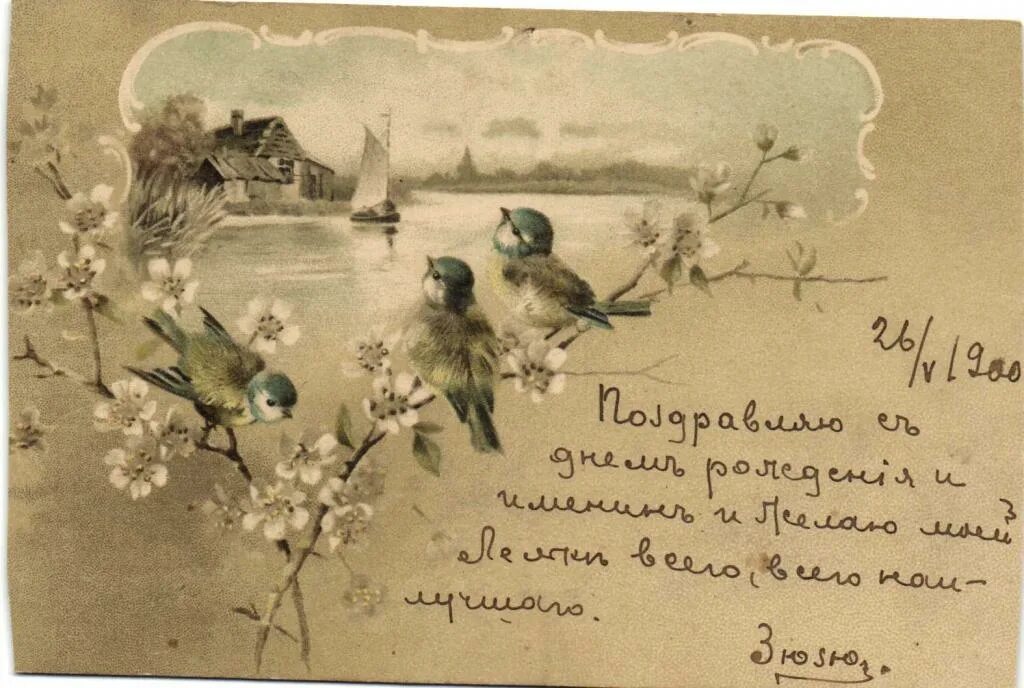 26/V 1900
Поздравляю съ
днемъ рожденія и
именинъ и желаю моей
всего, всего наи-
лучшаго.
Зюзю.